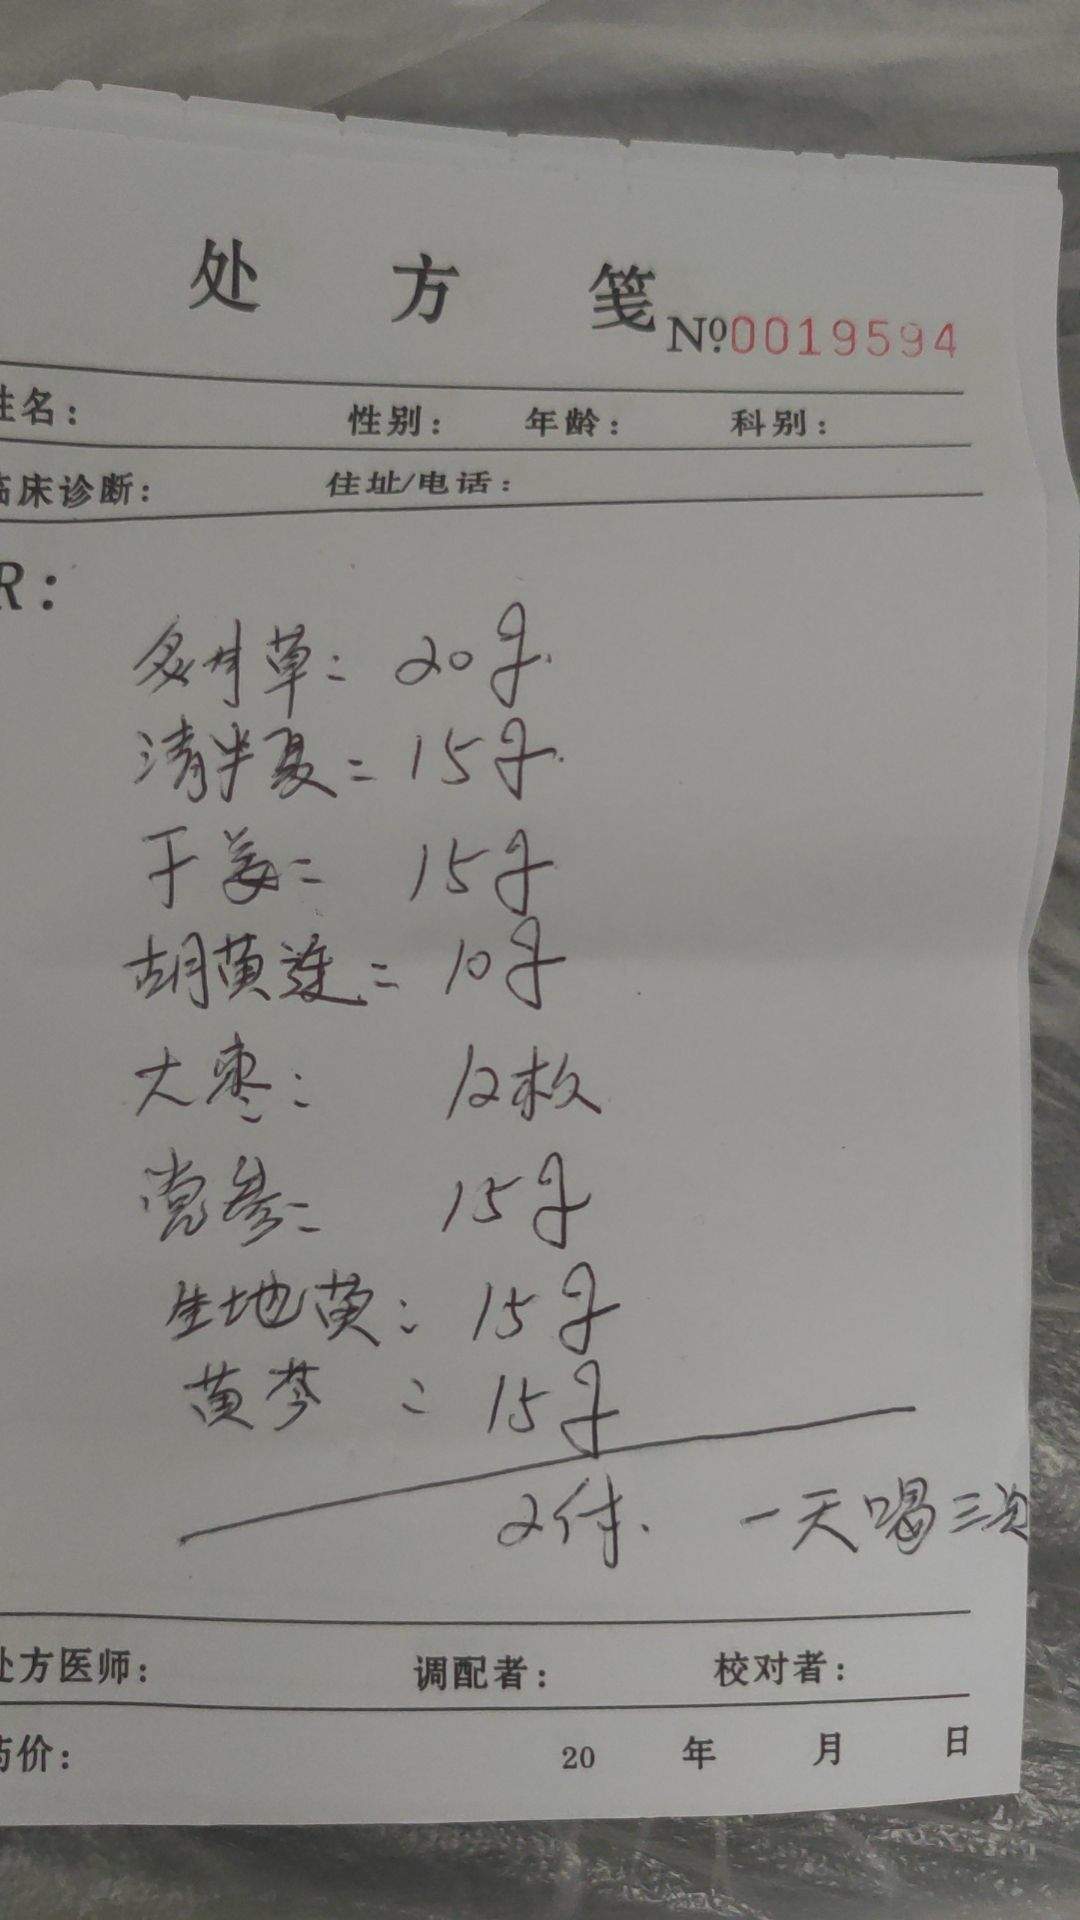 处方笺 Nº0019594
姓名： 性别： 年龄： 科别：
临床诊断： 住址/电话：
R：
炙甘草： 20g.
清半夏： 15g.
干姜： 15g
胡黄连： 10g
大枣： 12枚
党参： 15g
生地黄： 15g
黄芩： 15g
2付. 一天喝三次
处方医师： 调配者： 校对者：
药价： 20 年 月 日